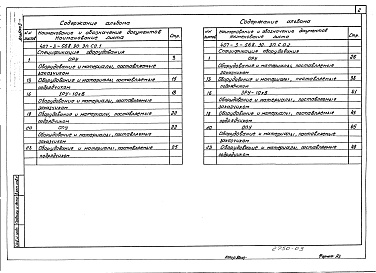 2
Содержание альбома
№№ листов
Наименование и обозначение документов
Наименование листа
Стр.
407-3-568.90 ЭП.СО.1
Спецификация оборудования
1 ОРУ 3
Оборудование и материалы, поставляемые
заказчиком
Оборудование и материалы, поставляемые
подрядчиком
16 ЗРУ-10кВ 18
Оборудование и материалы, поставляемые
заказчиком
Оборудование и материалы, поставляемые 20
подрядчиком
ОПУ 22
Оборудование и материалы, поставляемые
заказчиком
Оборудование и материалы, поставляемые 25
подрядчиком
Содержание альбома
№№ листов
Наименование и обозначение документов
Наименование листа
Стр.
407-3-568.90 ЭП.СО.2
Спецификация оборудования
1 ОРУ 26
Оборудование и материалы, поставляемые
заказчиком
Оборудование и материалы, поставляемые 38
подрядчиком
16 ЗРУ-10кВ 41
Оборудование и материалы, поставляемые
заказчиком
Оборудование и материалы, поставляемые
подрядчиком
ОПУ 45
Оборудование и материалы, поставляемые
заказчиком
Оборудование и материалы, поставляемые 48
подрядчиком
Формат А3